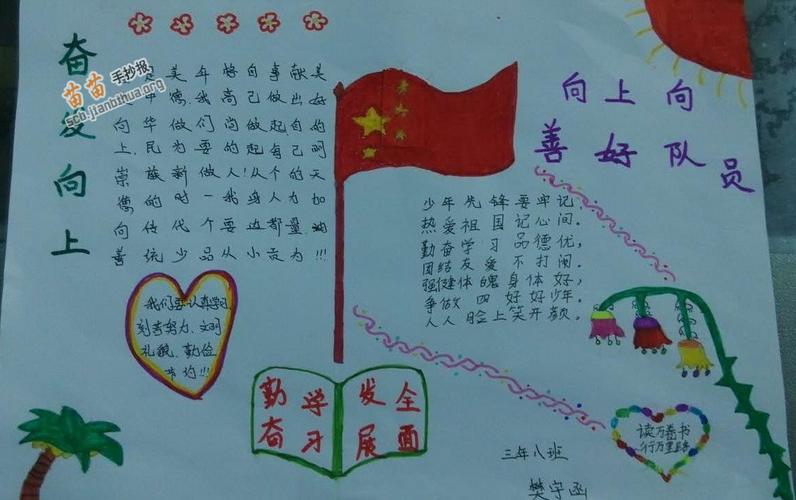 奋发向上
苗苗手抄报
sch.jianbihua.org
向上崇德向善
是中华民族的传统
美德,做为新时代少
年,我们要做一个品
高尚的人!我要从
自己做起从身边小
事做起自个人都贡
献出自己的力量为
美好的明天加!!!
向上向
善好队员
少年先锋要牢记,
热爱祖国记心间。
勤奋学习品德优,
团结友爱不打闹。
强健体魄身体好,
争做四好好少年。
人人脸上笑开颜。
我们要认真学习
刻苦努力、文明
礼貌、勤俭
节约!!!
勤奋学习
发展全面
读万卷书
行万里路
三年八班
樊宇函